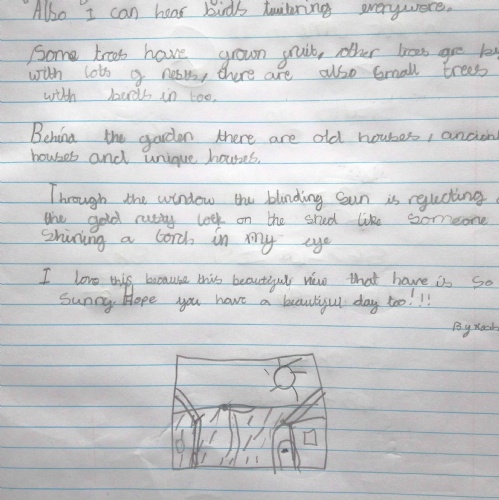 Also I can hear birds twitering everywere.
Some trees have grown fruit, other trees are
with lots of nests, there are also small trees
with birds in too.
Behind the garden there are old houses, ancient
houses and unique houses.
Through the window the blinding sun is reflecting
the gold rusty lock on the shed like someone
Shining a torch in my eye
I love this because this beautiful view that have is so
sunny. Hope you have a beautiful day too!!!
By